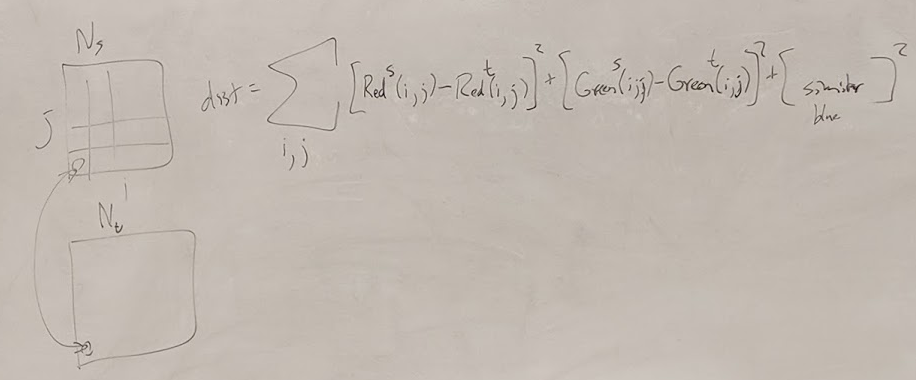 N_s
j
i
N_t
dist = \sum_{i,j} [Red^s(i,j) - Red^t(i,j)]^2 + [Green^s(i,j) - Green^t(i,j)]^2 + [similar blue]^2